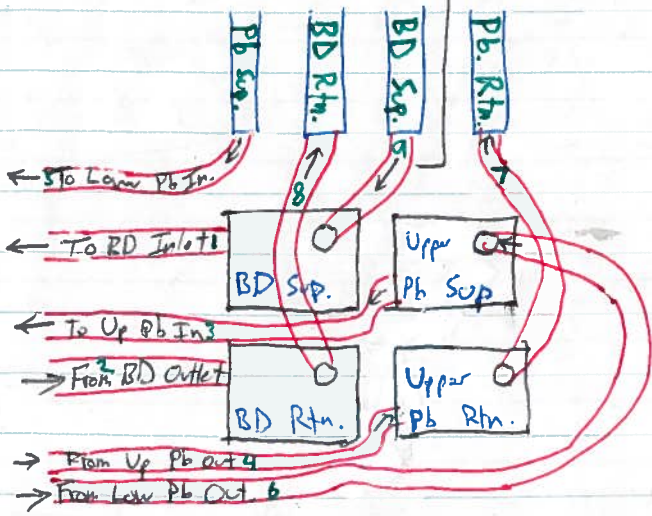 Pb Sup.
BD Rtn.
BD Sup.
Pb. Rtn.
9
8
7
5 To Low Pb In.
To BD Inlet 1
BD Sup.
Upper
Pb Sup
To Up Pb In 3
2
From BD Outlet
BD Rtn.
Upper
Pb Rtn.
From Up Pb Out 4
From Low Pb Out. 6